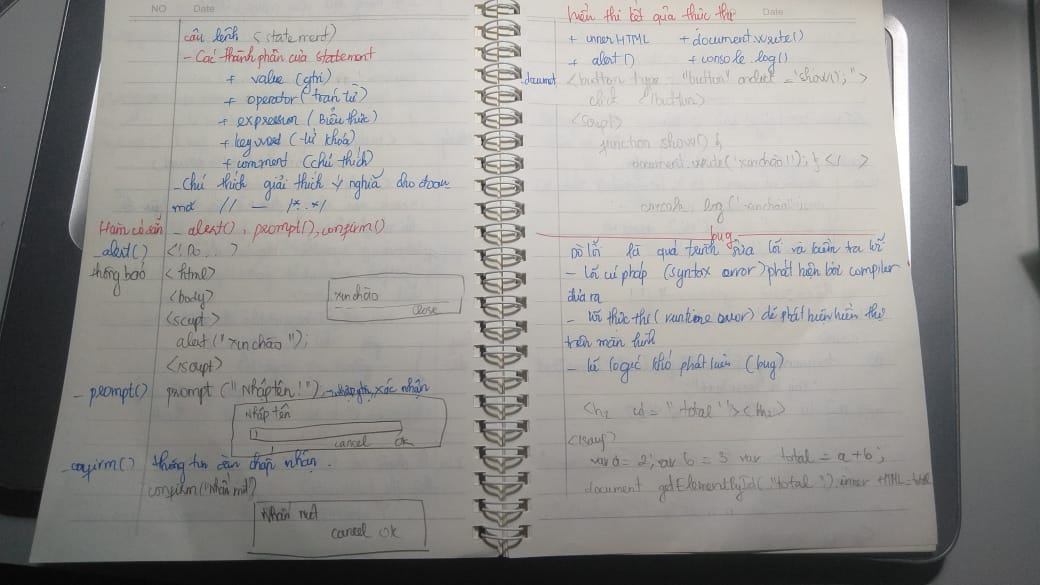 NO Date
câu lệnh (statement)
- Các thành phần của statement
+ value (gtri)
+ operator (toán tử)
+ expression (Biểu thức)
+ keyword (từ khoá)
+ comment (chú thích)
- Chú thích giải thích ý nghĩa cho đoạn
mã // — /*..*/
Hàm có sẵn - alert(), prompt(), confirm()
- alert() <!Do...>
thông báo <html>
<body>
<script>
alert("xin chào");
</script>
xin chào
close
- prompt() prompt("Nhập tên!") → nhập, xác nhận
Nhập tên
cancel ok
- confirm() thông tin cần chấp nhận.
confirm("Nhấn nút")
Nhấn nut
cancel ok
Date
hiển thị kết quả thực thi
+ innerHTML + document.write()
+ alert() + console.log()
<button type = "button" onclick = "show();">
click </button>
<script>
function show() {
document.write('xin chào!!'); } </ >
log('xin chào'
bug
Dò lỗi là quá trình sửa lỗi và kiểm tra lỗi
- lỗi cú pháp (syntax error) phát hiện bởi compiler
đưa ra
- lỗi thực thi (runtime error) dễ phát hiện hiển thị
trên màn hình
- lỗi logic khó phát hiện (bug)
<h2 id = "total"></h2>
var a = 2; var b = 3 var total = a + b;
document getElementById("total").innerHTML = total